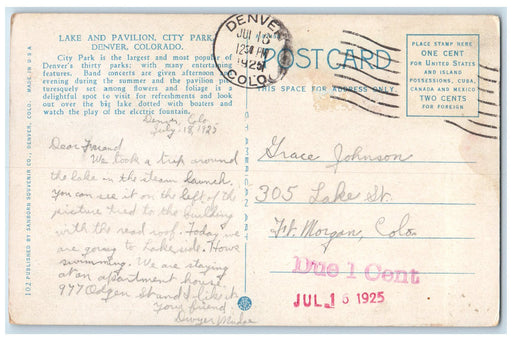 LAKE AND PAVILION, CITY PARK,
DENVER, COLORADO.
City Park is the largest and most popular of
Denver's thirty parks: with many entertaining
features. Band concerts are given afternoon and
evening during the summer and the pavilion pic-
turesquely set among flowers and foliage is a
delightful spot to visit for refreshments and look
out over the big lake dotted with boaters and
watch the play of the electric fountain.
102-PUBLISHED BY SANBORN SOUVENIR CO., DENVER, COLO. MADE IN U.S.A
DENVER
JUL 16
12 PM
1925
COLO.
POSTCARD
THIS SPACE FOR ADDRESS ONLY.
PLACE STAMP HERE
ONE CENT
FOR UNITED STATES
AND ISLAND
POSSESSIONS, CUBA,
CANADA AND MEXICO
TWO CENTS
FOR FOREIGN
Denver, Colo.
July, 18, 1925
Dear Friend
We took a trip around
the lake in the steam launch.
You can see it on the left of the
picture tied to the building
with the read roof. Today we
are going to Lakeside. Howe
swimming. We are staying
at an apartment house
977 Odgen St and I like it
your friend
Dwyer
Grace Johnson
305 Lake St.
Ft. Morgan, Colo.
Due 1 Cent
JUL 16 1925